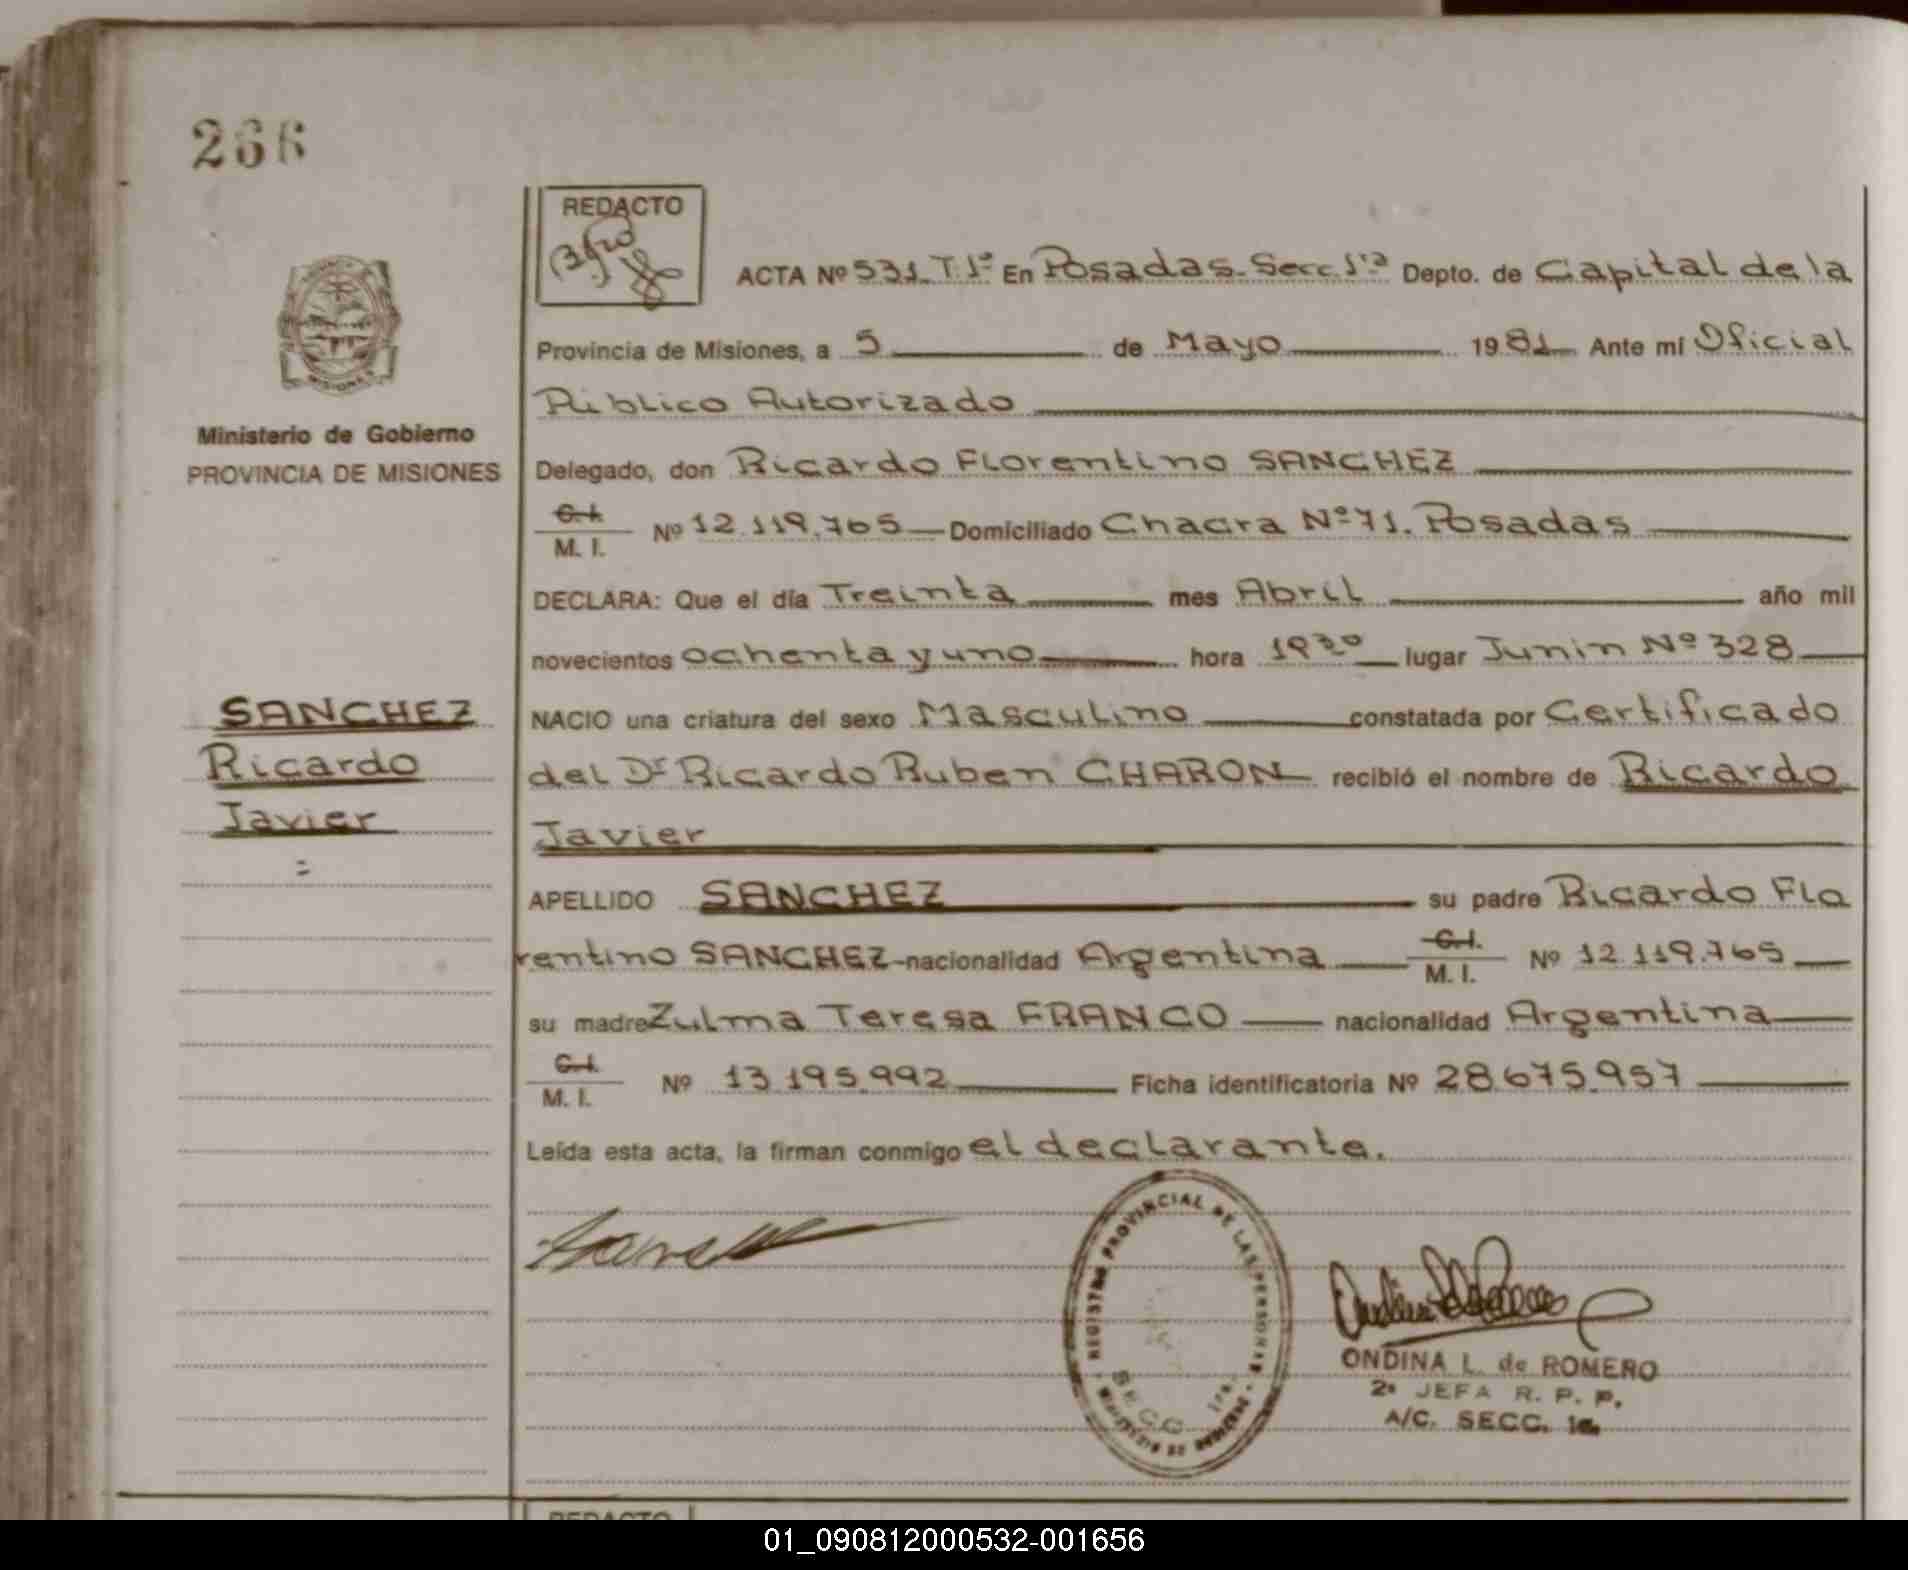 266
REDACTO
ACTA Nº 531 T. 1º En Posadas. Secc. 1ra Depto. de Capital de la
Provincia de Misiones, a 5 de Mayo 1981 Ante mí Oficial
Público Autorizado
Ministerio de Gobierno
PROVINCIA DE MISIONES
Delegado, don Ricardo Florentino SANCHEZ
C.I.
M. I. Nº 12.119.765 Domiciliado Chacra Nº 71. Posadas
DECLARA: Que el día Treinta mes Abril año mil
novecientos ochenta y uno hora 19 30 lugar Junin Nº 328
SANCHEZ
Ricardo
Javier
=
NACIO una criatura del sexo Masculino constatada por Certificado
del Dr Ricardo Ruben CHARON recibió el nombre de Ricardo
Javier
APELLIDO SANCHEZ su padre Ricardo Flo
rentino SANCHEZ nacionalidad Argentina C.I. M. I. Nº 12.119.765
su madre Zulma Teresa FRANCO nacionalidad Argentina
C.I.
M. I. Nº 13.195.992 Ficha identificatoria Nº 28.675.957
Leída esta acta, la firman conmigo el declarante.
REGISTRO PROVINCIAL DE LAS PERSONAS
MINISTERIO DE GOBIERNO
SECC. 1ra.
ONDINA L. de ROMERO
2ª JEFA R. P. P.
A/C. SECC. 1a.
MISIONES
REDACTO
01_090812000532-001656